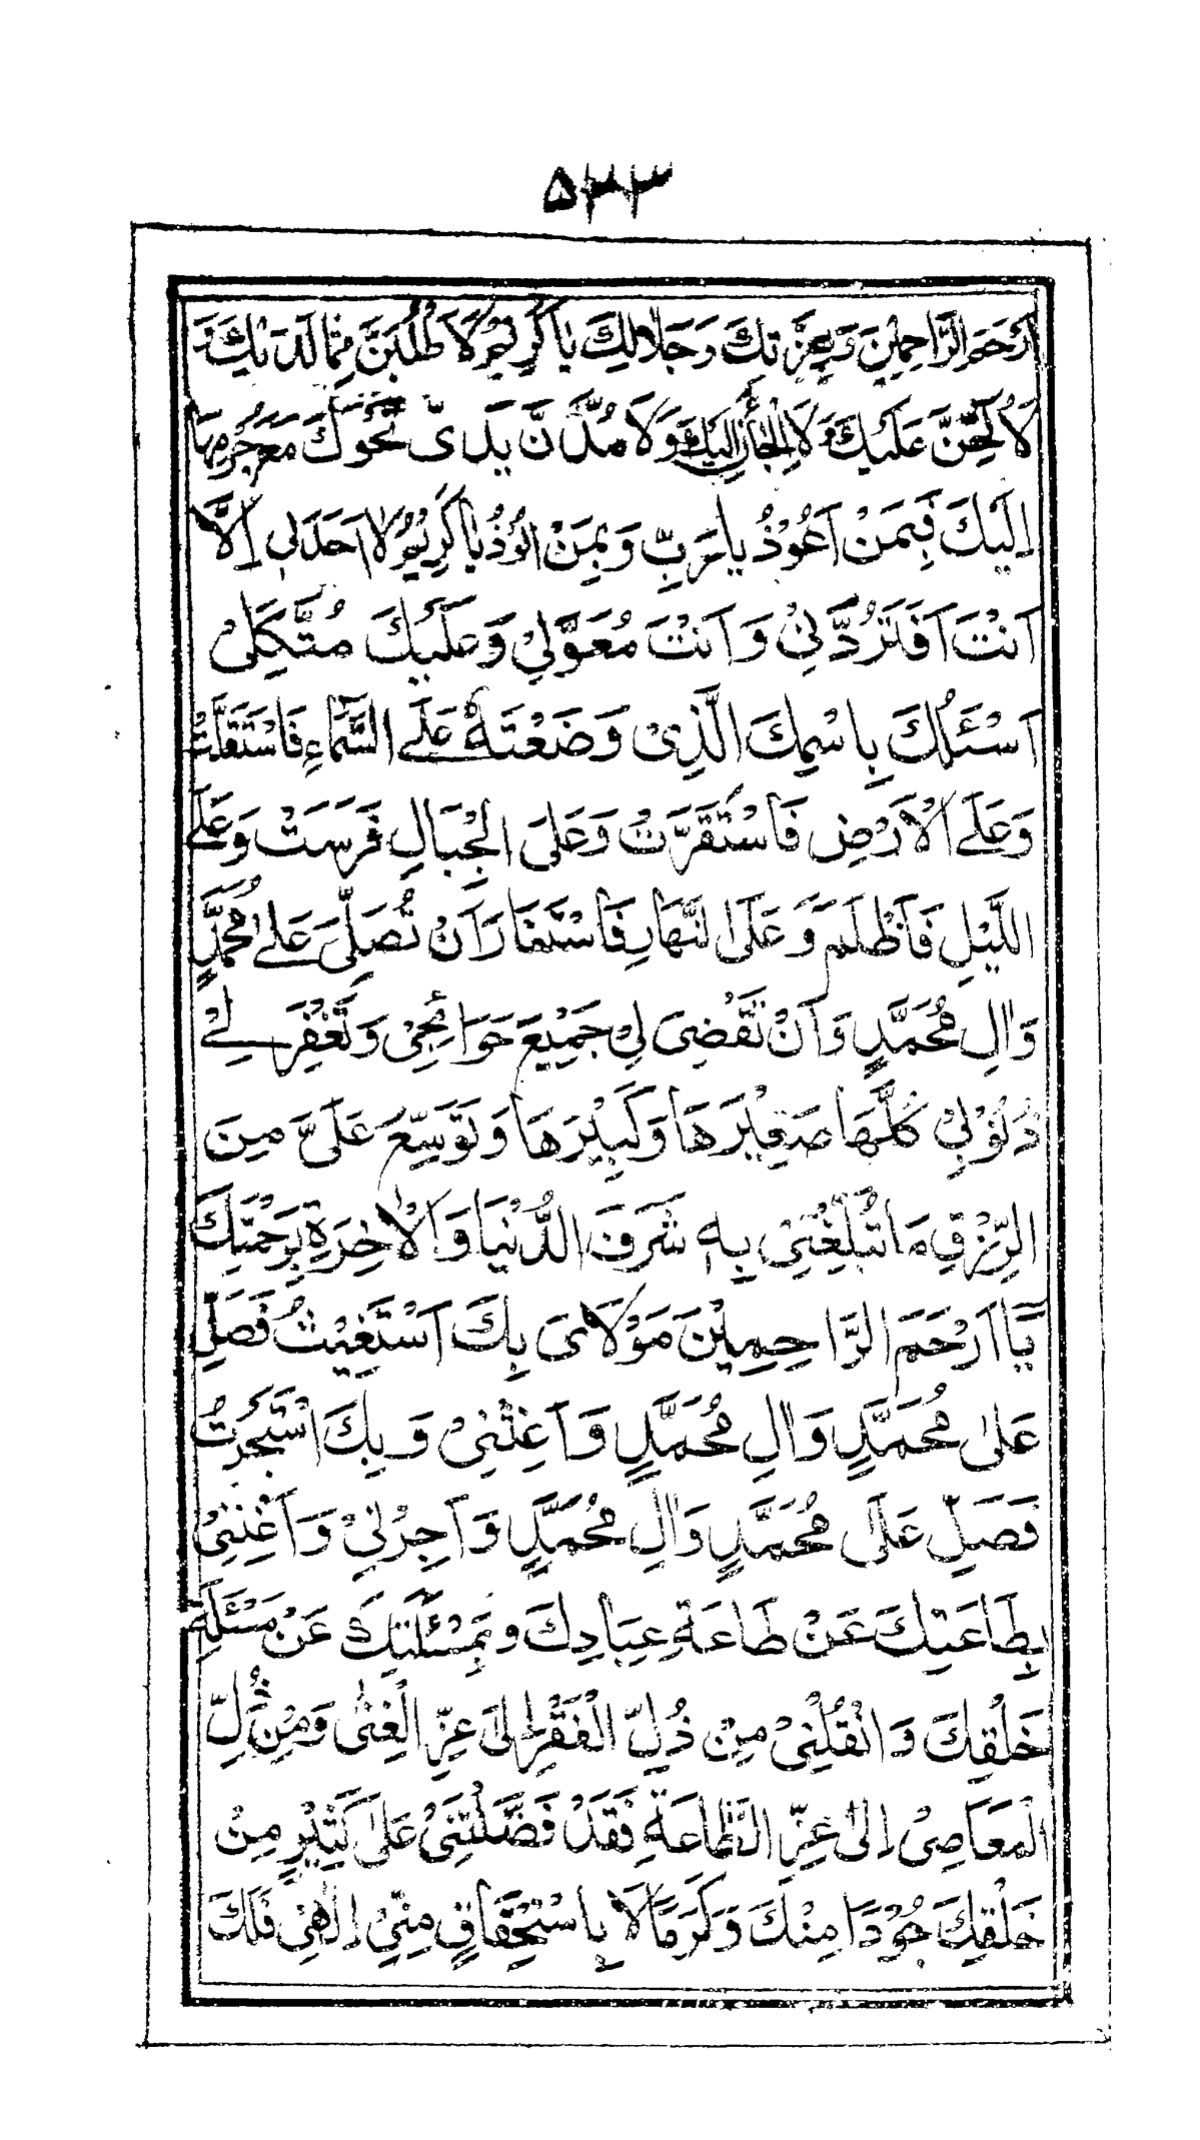 ۵۳۳
اَرْحَمَ الرَّاحِمِيْنَ وَعِزَّتِكَ وَجَلَالِكَ يَا كَرِيْمُ لَاَطْلُبَنَّ مِمَّا لَدَيْكَ وَ
لَاُلِحَّنَّ عَلَيْكَ وَ لَاَلْجَاَنَّ اِلَيْكَ وَ لَاَمُدَّنَّ يَدَىَّ نَحْوَكَ مَعَ جُرْمِهَا
اِلَيْكَ فَبِمَنْ اَعُوْذُ يَا رَبِّ وَ بِمَنْ اَلُوْذُ يَا كَرِيْمُ لَا اَحَدَ لِىْ اِلَّا
اَنْتَ اَفَتَرُدَّنِىْ وَ اَنْتَ مُعَوَّلِىْ وَ عَلَيْكَ مُتَّكَلِىْ
اَسْئَلُكَ بِاسْمِكَ الَّذِىْ وَضَعْتَهُ عَلَى السَّمَاءِ فَاسْتَقَلَّتْ
وَ عَلَى الْاَرْضِ فَاسْتَقَرَّتْ وَ عَلَى الْجِبَالِ فَرَسَتْ وَ عَلَى
اللَّيْلِ فَاَظْلَمَ وَ عَلَى النَّهَارِ فَاسْتَنَارَ اَنْ تُصَلِّىَ عَلٰى مُحَمَّدٍ
وَاٰلِ مُحَمَّدٍ وَ اَنْ تَقْضِىَ لِىْ جَمِيْعَ حَوَائِجِىْ وَ تَغْفِرَ لِىْ
ذُنُوْبِىْ كُلَّهَا صَغِيْرَهَا وَ كَبِيْرَهَا وَ تُوَسِّعَ عَلَىَّ مِنَ
الرِّزْقِ مَا تُبَلِّغُنِىْ بِهٖ شَرَفَ الدُّنْيَا وَ الْاٰخِرَةِ بِرَحْمَتِكَ
يَا اَرْحَمَ الرَّاحِمِيْنَ مَوْلَاىَ بِكَ اَسْتَغِيْثُ فَصَلِّ
عَلٰى مُحَمَّدٍ وَاٰلِ مُحَمَّدٍ وَ اَغِثْنِىْ وَ بِكَ اسْتَجَرْتُ
فَصَلِّ عَلٰى مُحَمَّدٍ وَاٰلِ مُحَمَّدٍ وَ اَجِرْنِىْ وَ اَغْنِنِىْ
بِطَاعَتِكَ عَنْ طَاعَةِ عِبَادِكَ وَ بِمَسْئَلَتِكَ عَنْ مَسْئَلَةِ
خَلْقِكَ وَ انْقُلْنِىْ مِنْ ذُلِّ الْفَقْرِ اِلٰى عِزِّ الْغِنٰى وَ مِنْ ذُلِّ
الْمَعَاصِىْ اِلٰى عِزِّ الطَّاعَةِ فَقَدْ فَضَّلْتَنِىْ عَلٰى كَثِيْرٍ مِنْ
خَلْقِكَ جُوْدًا مِنْكَ وَ كَرَمًا لَا بِاسْتِحْقَاقٍ مِنِّىْ اِلٰهِىْ فَلَكَ